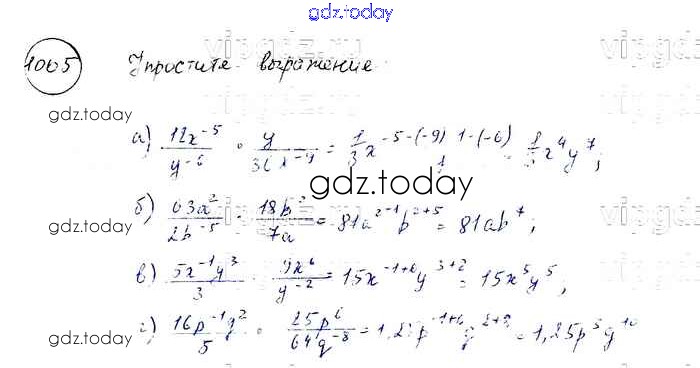 gdz.today
1065 Упростите выражение
gdz.today
а) 12x^-5 / y^-6 · y / 36x^-9 = 1/3 x^-5-(-9) y^1-(-6) = 1/3 x^4 y^7;
gdz.today
б) 63a^2 / 2b^-5 · 18b^2 / 7a = 81a^2-1 b^2+5 = 81ab^7;
в) 5x^-1 y^3 / 3 · 9x^6 / y^-2 = 15x^-1+6 y^3+2 = 15x^5 y^5;
г) 16p^-1 q^2 / 5 · 25p^6 / 64q^-8 = 1,25p^-1+6 q^2+8 = 1,25p^5 q^10
gdz.today
gdz.today